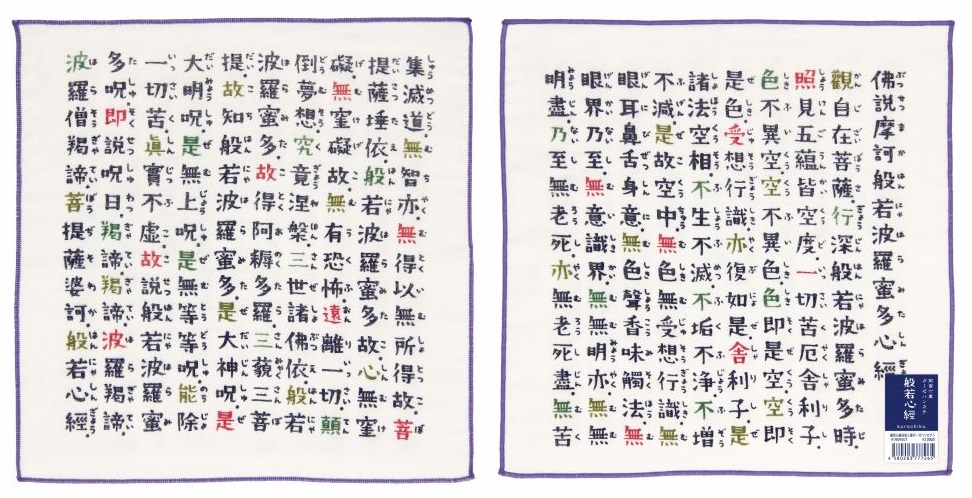 佛説摩訶般若波羅蜜多心經
觀自在菩薩行深般若波羅蜜多時
照見五蘊皆空度一切苦厄舍利子
色不異空空不異色色即是空空即
是色受想行識亦復如是舍利子是
諸法空相不生不滅不垢不浄不增
不減是故空中無色無受想行識無
眼耳鼻舌身意無色聲香味觸法無
眼界乃至無意識界無無明亦無無
明盡乃至無老死亦無老死盡無苦
集滅道無智亦無得以無所得故菩
提薩埵依般若波羅蜜多故心無罣
礙無罣礙故無有恐怖遠離一切顛
倒夢想究竟涅槃三世諸佛依般若
波羅蜜多故得阿耨多羅三藐三菩
提故知般若波羅蜜多是大神呪是
大明呪是無上呪是無等等呪能除
一切苦眞實不虚故説般若波羅蜜
多呪即説呪曰羯諦羯諦波羅羯諦
波羅僧羯諦菩提薩婆訶般若心經
ガーゼハンカチ
般若心經
kurochiku